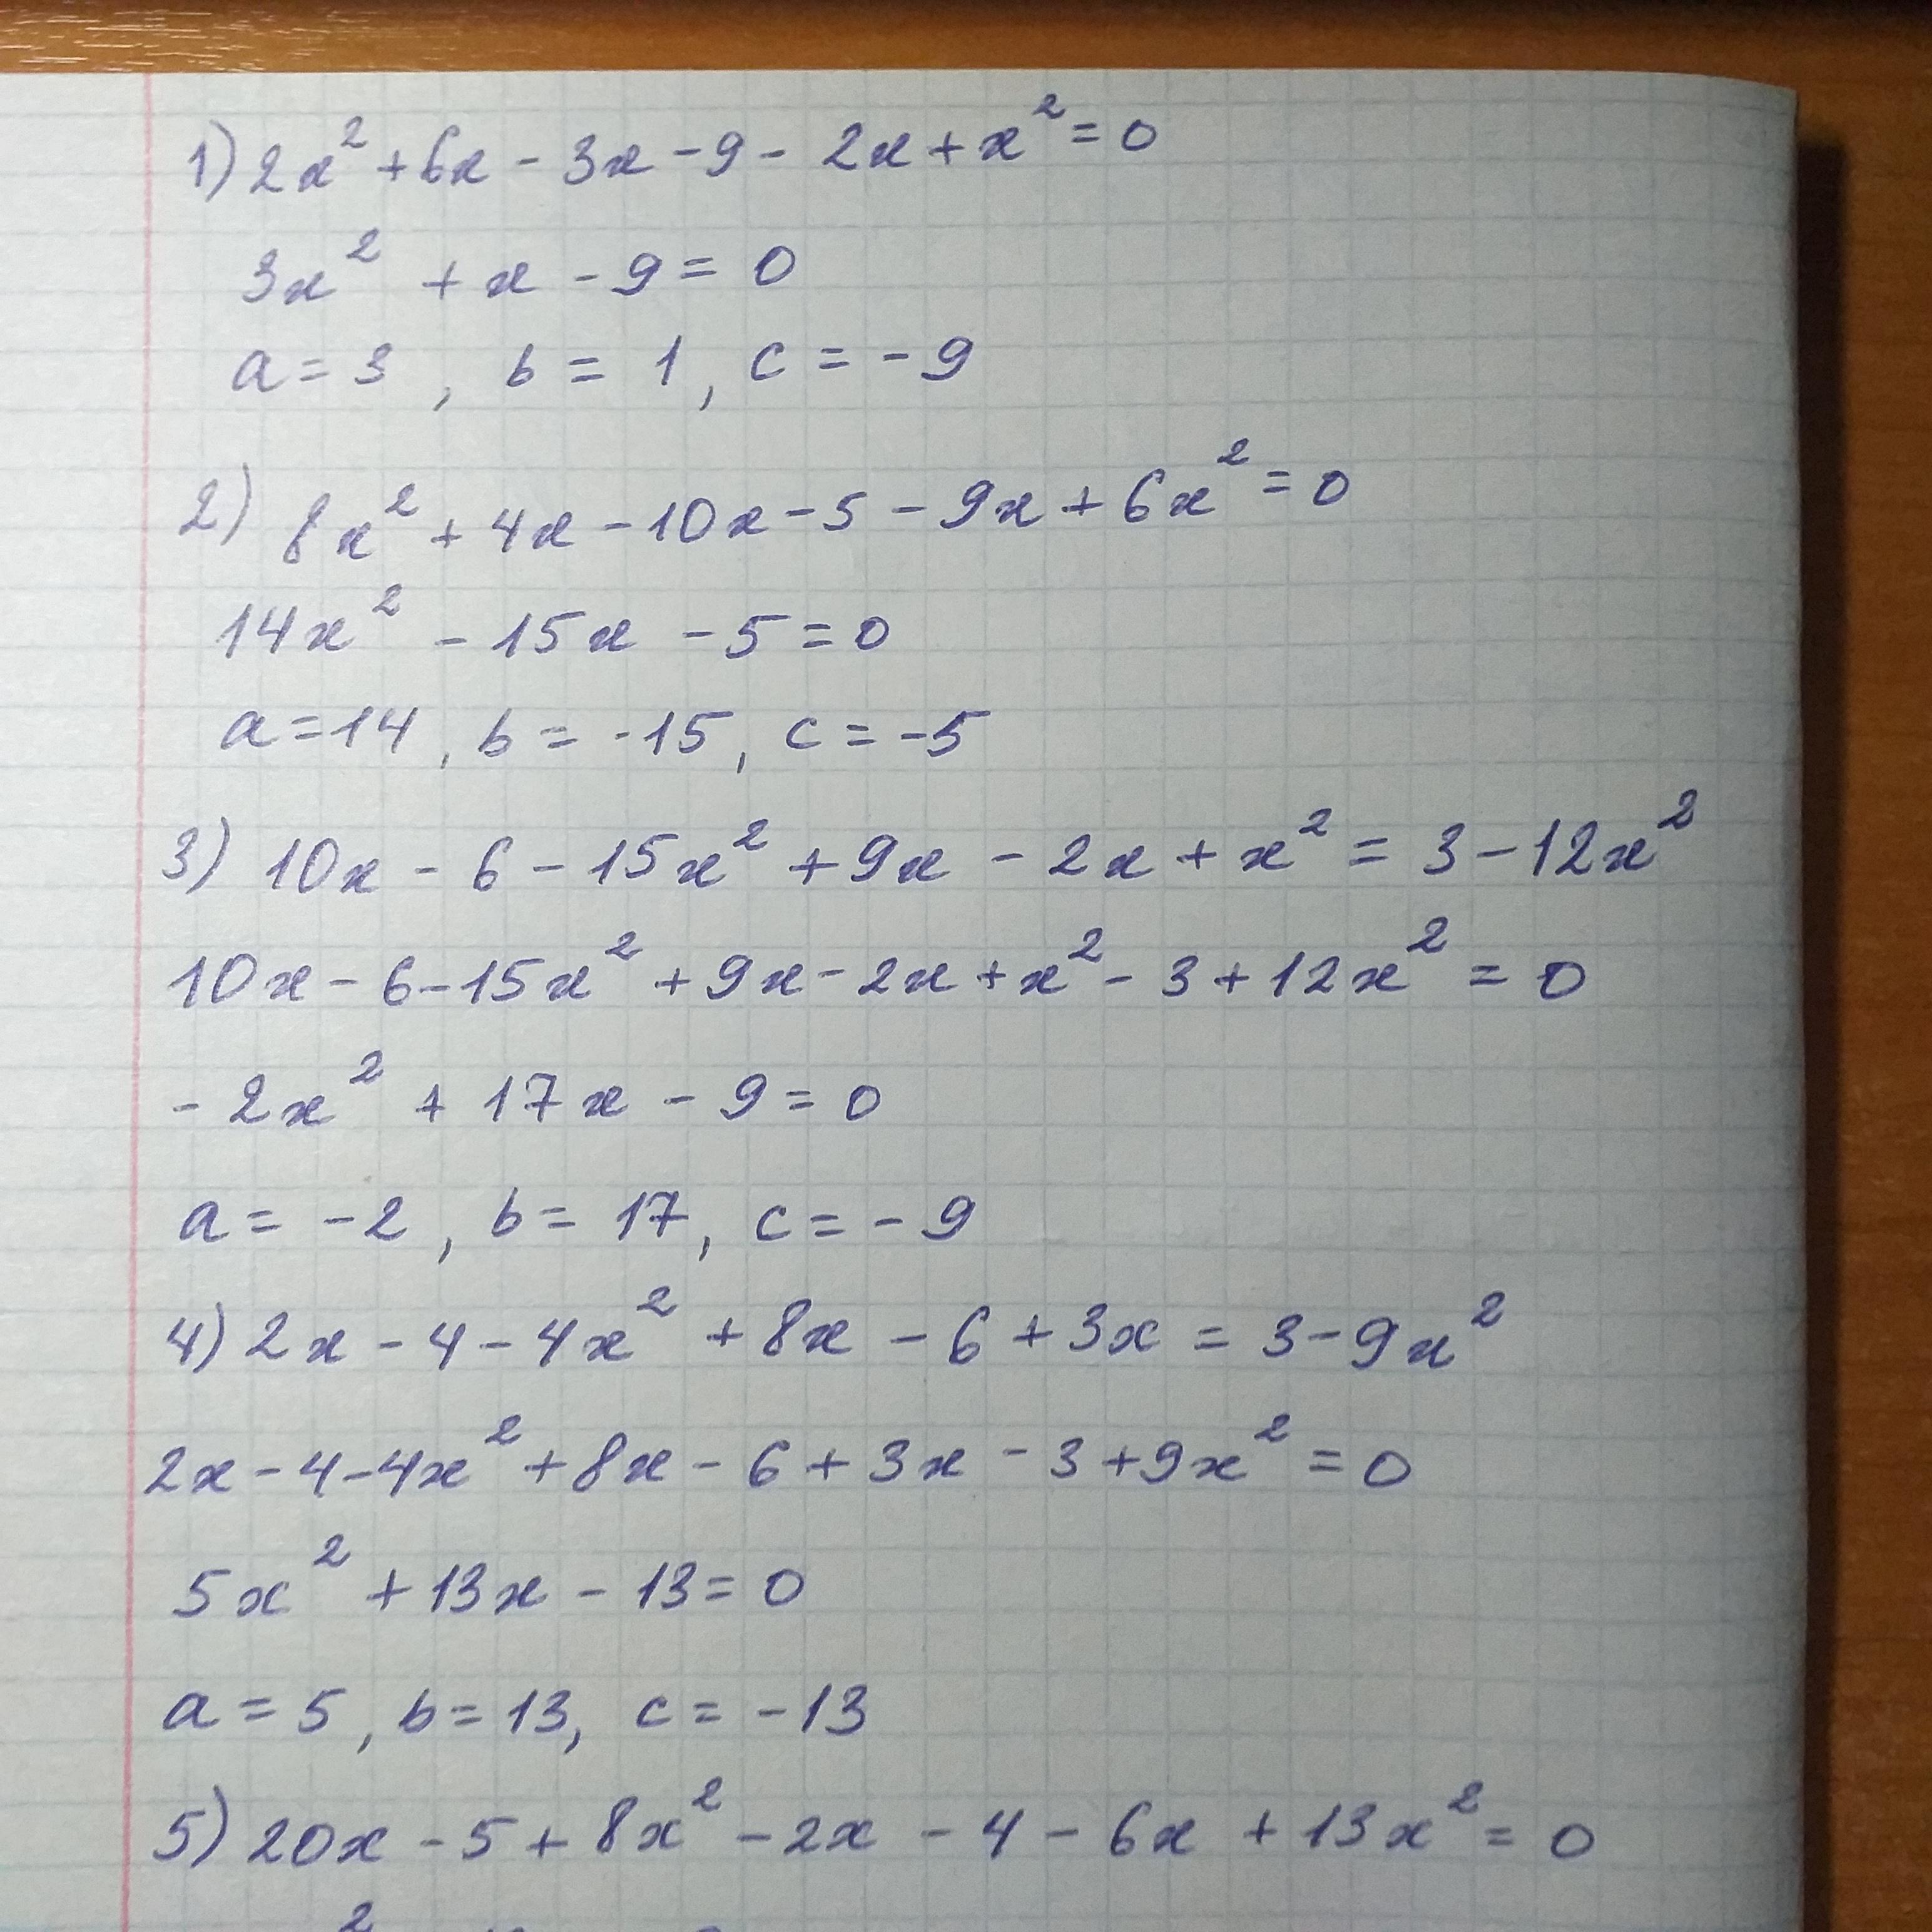 1) 2x² + 6x - 3x - 9 - 2x + x² = 0
3x² + x - 9 = 0
a = 3, b = 1, c = -9
2) 8x² + 4x - 10x - 5 - 9x + 6x² = 0
14x² - 15x - 5 = 0
a = 14, b = -15, c = -5
3) 10x - 6 - 15x² + 9x - 2x + x² = 3 - 12x²
10x - 6 - 15x² + 9x - 2x + x² - 3 + 12x² = 0
-2x² + 17x - 9 = 0
a = -2, b = 17, c = -9
4) 2x - 4 - 4x² + 8x - 6 + 3x = 3 - 9x²
2x - 4 - 4x² + 8x - 6 + 3x - 3 + 9x² = 0
5x² + 13x - 13 = 0
a = 5, b = 13, c = -13
5) 20x - 5 + 8x² - 2x - 4 - 6x + 13x² = 0